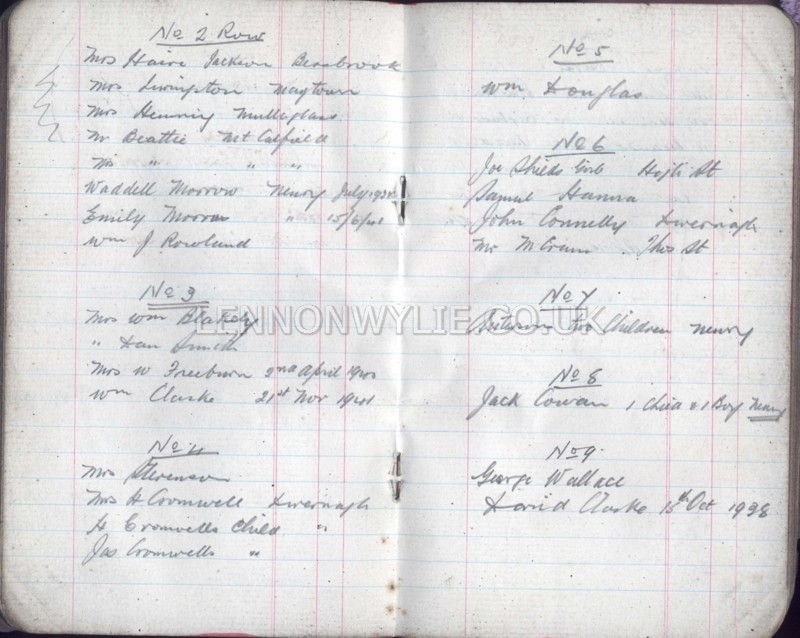 No 2 Row
Mrs Haire Jackson Bessbrook
Mrs Livingston Maytown
Mrs Henning Mulliglass
Mr Beattie Mt Calfield
Mrs " " "
Waddell Morrow Newry July 1931
Emily Morrow " 15/6/41
Wm J Rowland
No 3
Mrs Wm Blakely
" Smith
Mrs W Freeburn 2nd April 1940
Wm Clarke 21st Nov 1941
No 4
Mrs Stevenson
Mrs H Cromwell
H Cromwells Child "
Jas Cromwells "
No 5
Wm Douglas
No 6
Joe Shields High St
Samuel Hanna
John Connelly
Mr St
No 7
Two Children Newry
No 8
Jack Cowan 1 Child & 1 Boy Newry
No 9
George Wallace
David Clarke 15th Oct 1938
LENNONWYLIE.CO.UK